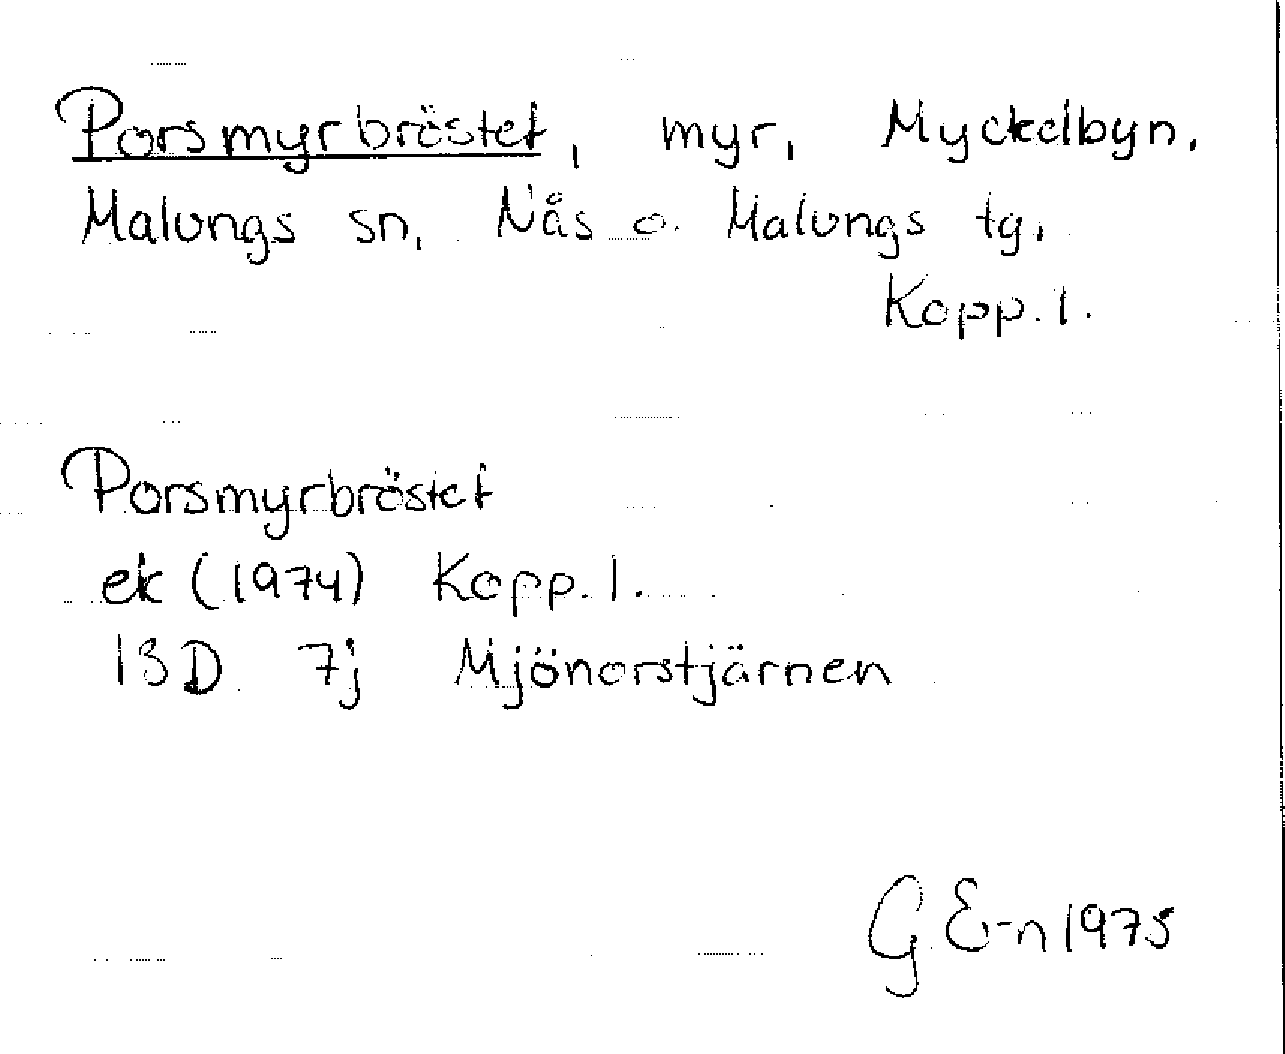 Porsmyrbröstet, myr, Myckelbyn.
Malungs sn, Nås o. Malungs tg.
Kopp. l.
Porsmyrbröstet
ek (1974) Kopp. l.
13D 7j Mjönorstjärnen
G E-n 1975